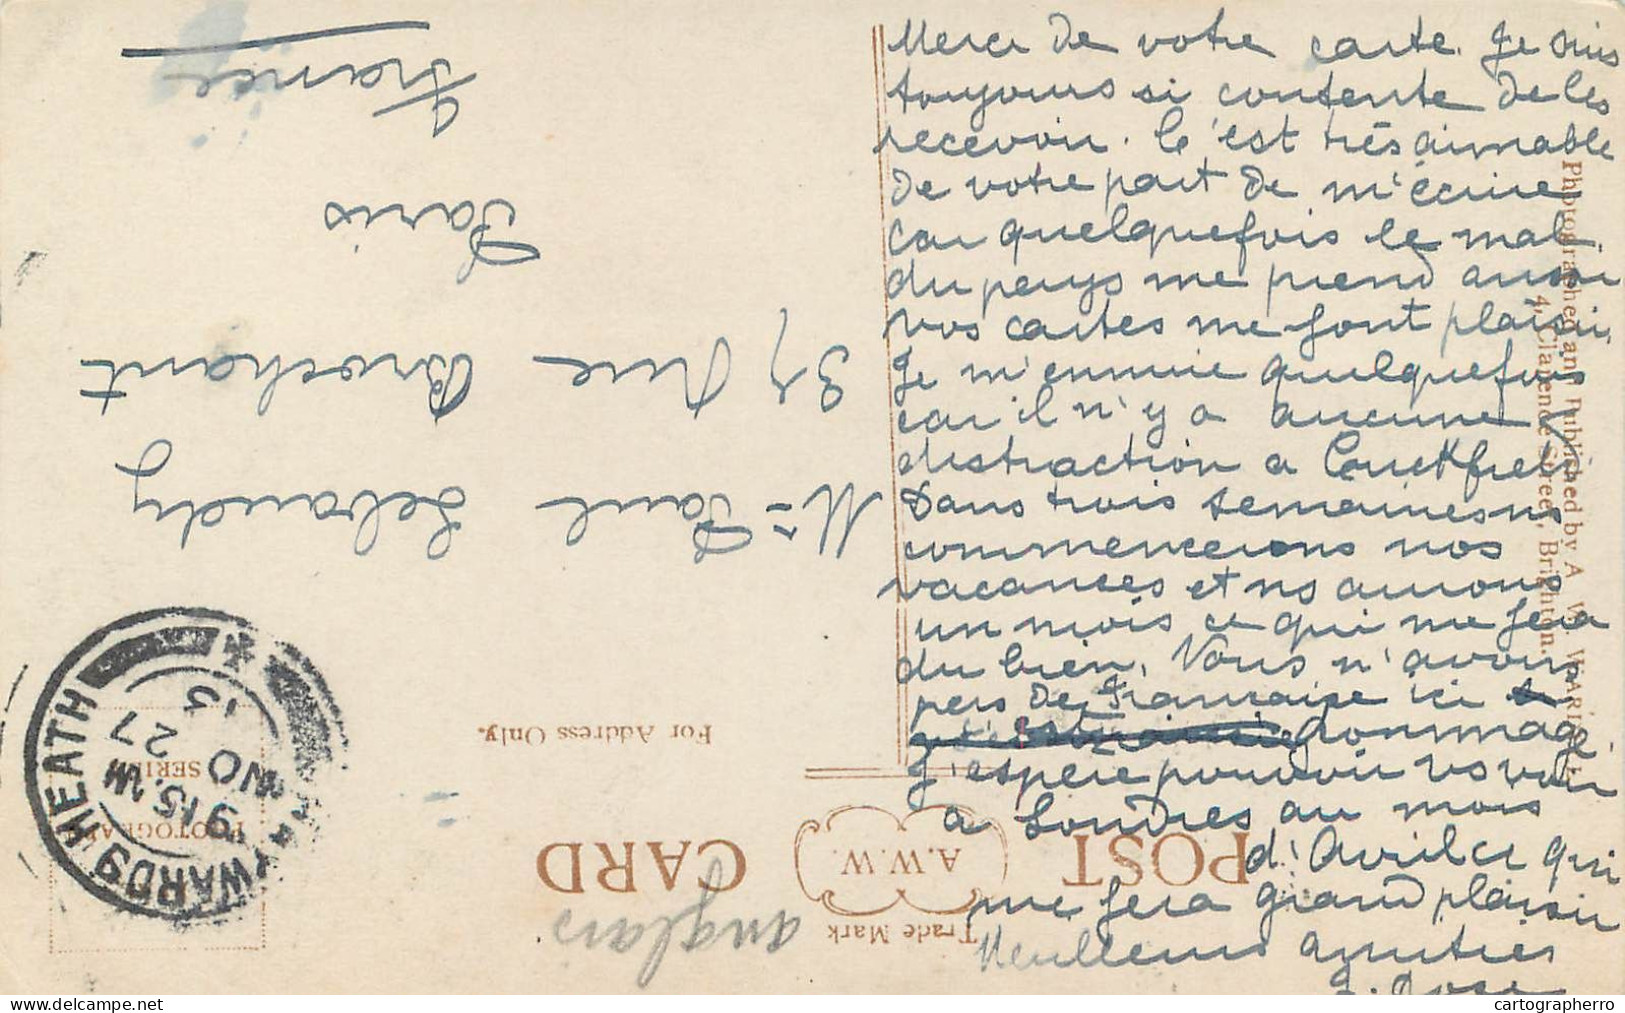 Merci de votre carte. Je suis
toujours si contente de les
recevoir. C'est très aimable
de votre part de m'écrire
car quelquefois le mal
du pays me prend aussi
vos cartes me font plaisir.
Je m'ennuie quelquefois
car il n'y a aucune
distraction a Cuckfield
Dans trois semaines ns
commencerons nos
vacances et ns aurons
un mois ce qui me fera
du bien. Vous n'avons
pers de Française ici
dommage.
J'espère pouvoir vs voir
a Londres au mois
d'Avril ce qui
me fera grand plaisir
Meilleures amitiés
Rose
Photographed and Published by A. W. WARD
4, Clarence Street, Brighton.
Trade Mark
POST CARD
A.W.W.
anglais
For Address Only.
Mr Paul Lebaudy
37 Rue Brochant
Paris
France
HAYWARDS HEATH
9 15 PM
NO 27
15
PHOTOGRAPH
SERI
cartographerro